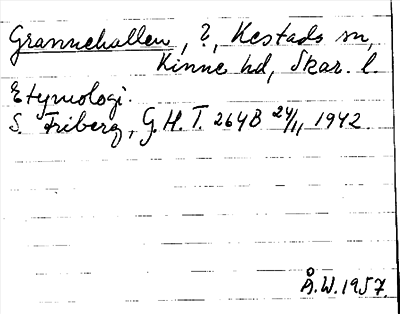 Grannehallen, ?, Kestads sn,
Kinne hd, Skar. l.
Etymologi.
S. Friberg, G.H.T. 264B 24/11 1942.
Å.W. 1957.